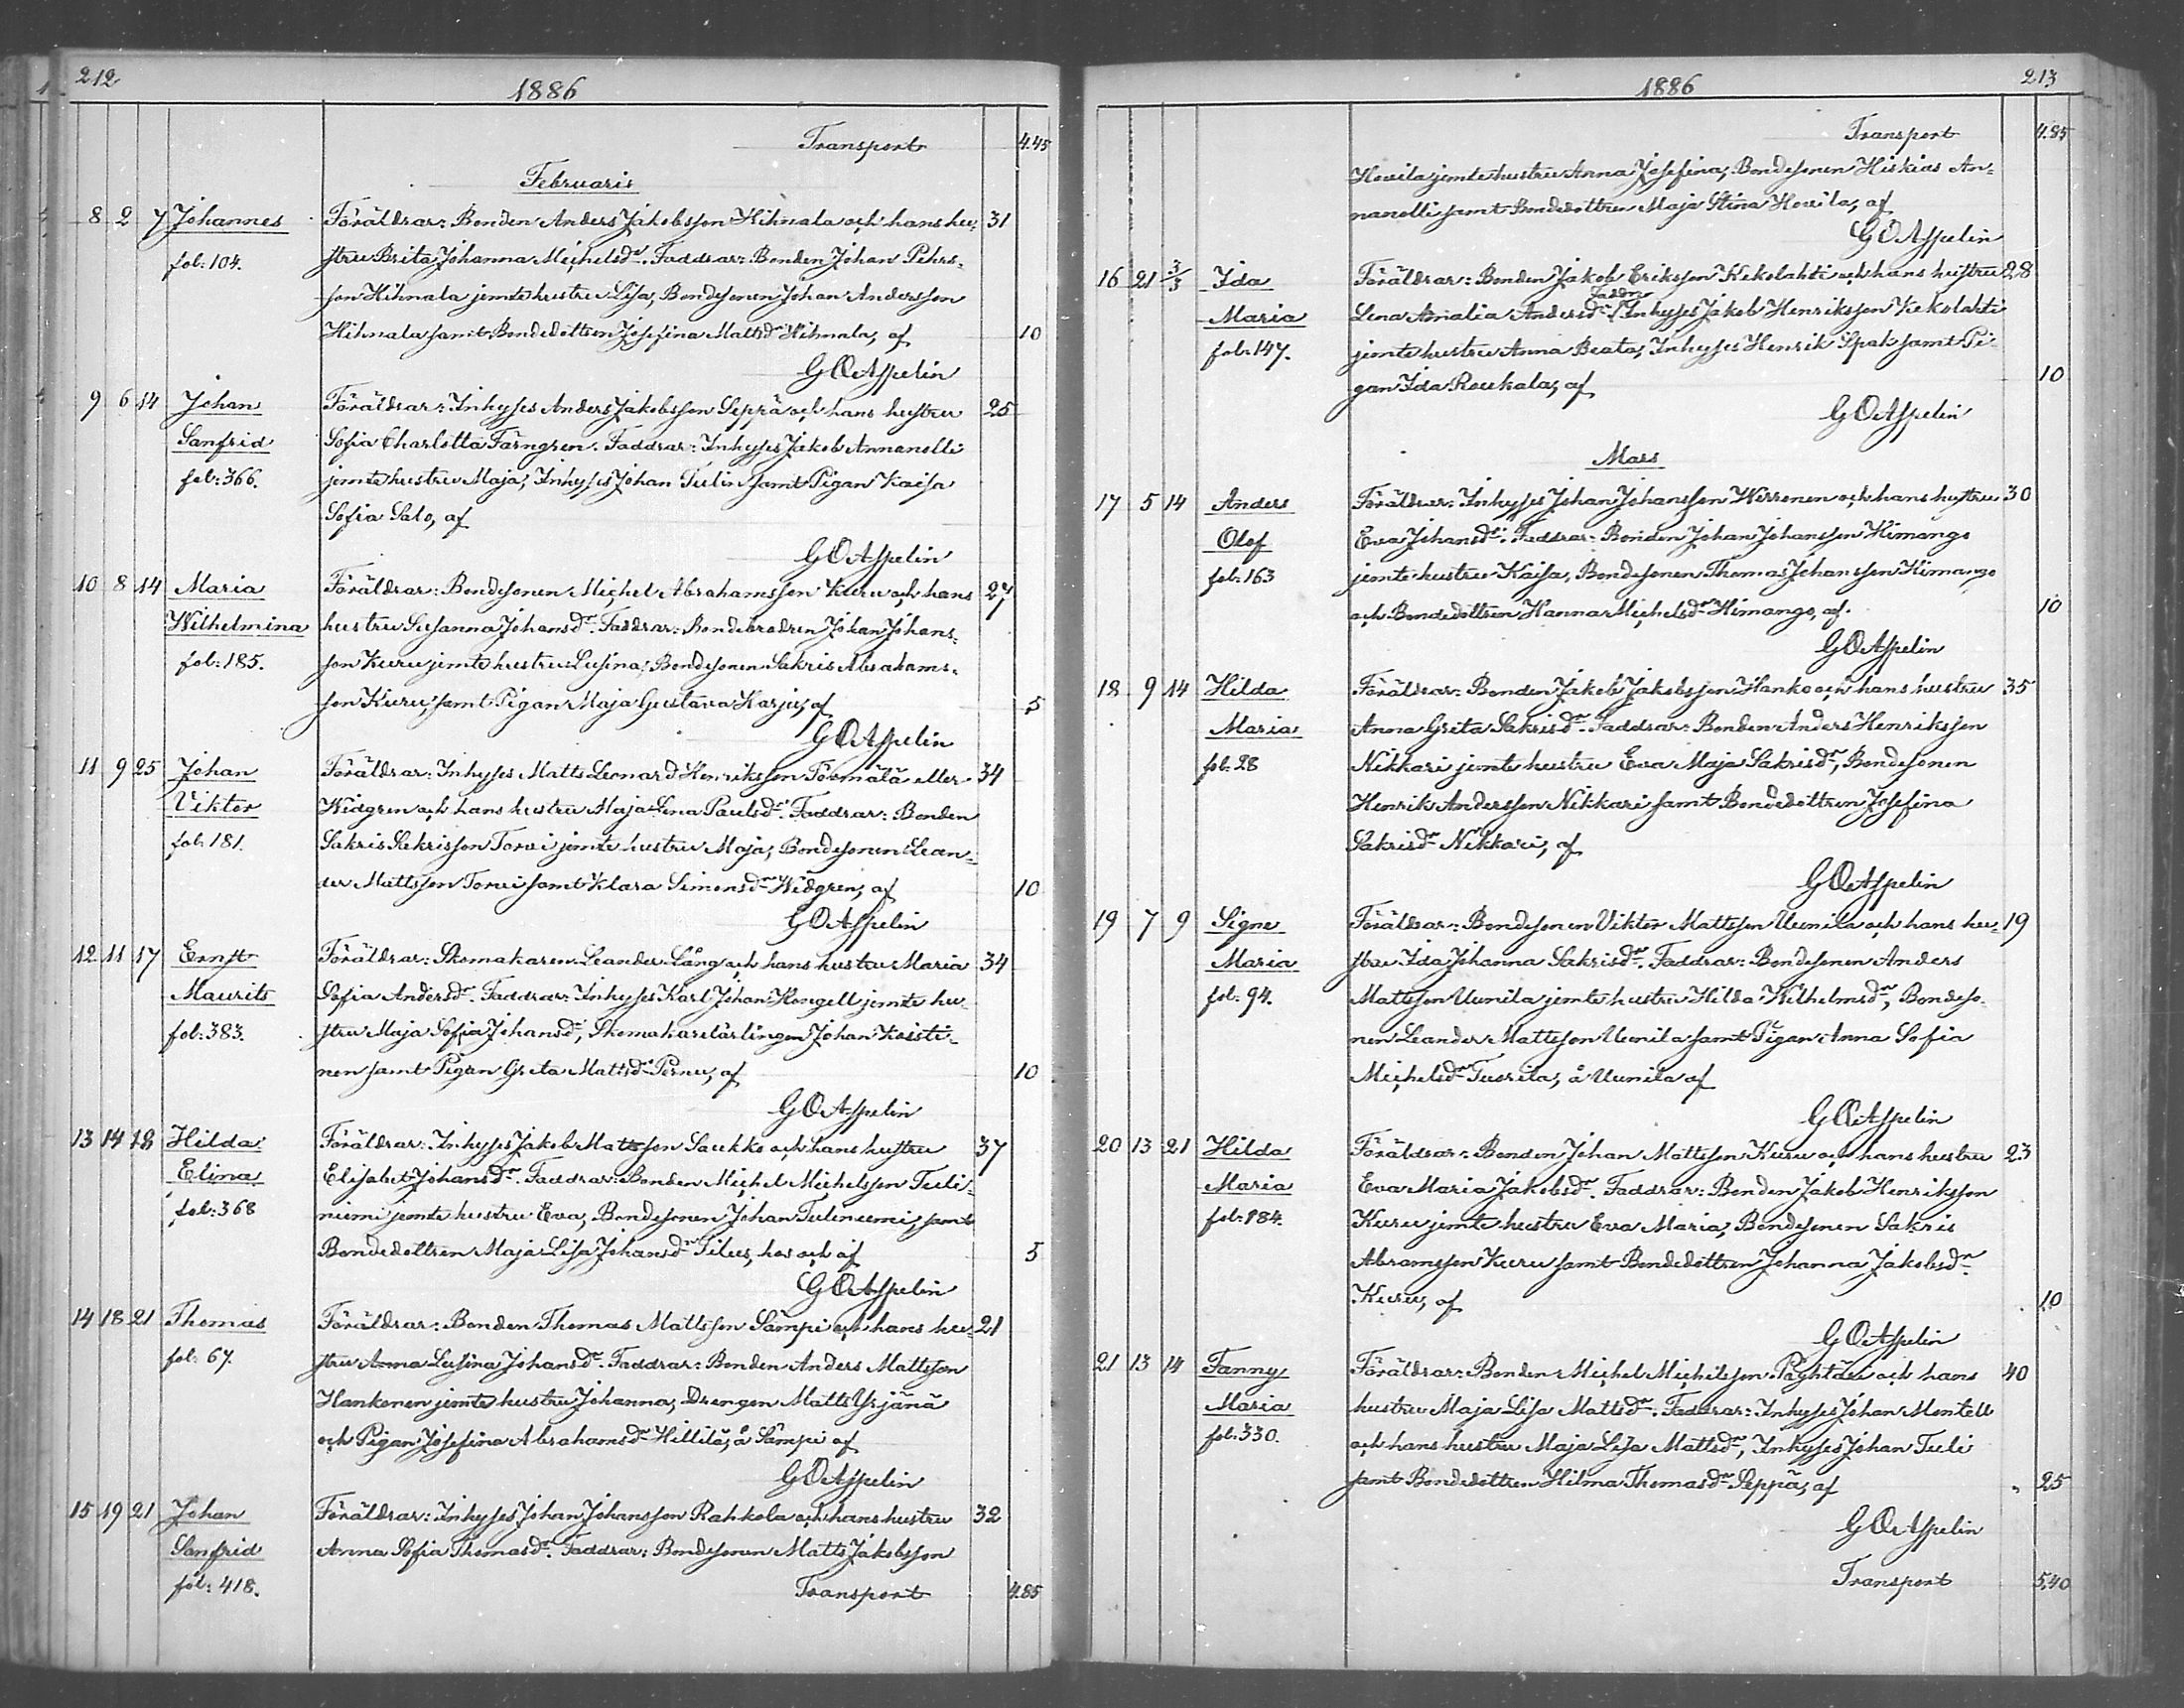 212
1886
Transport 4.45
Februaris
8 2 7 Johannes Föräldrar: Bonden Anders Jakobsson Hihnala och hans hu- 31
fol: 104. stru Brita Johanna Michelsdr. Faddrar: Bonden Johan Pehrs-
son Hihnala jemte hustru Lisa, Bondesonen Johan Andersson
Hihnala samt Bondedottren Josefina Mattsdr Hihnala, af 10
G O Aspelin
9 6 14 Johan Föräldrar: Inhyses Anders Jakobsson Seppä och hans hustru 25
Sanfrid Sofia Charlotta Färngren. Faddrar: Inhyses Jakob Annanolli
fol: 366. jemte hustru Maja, Inhyses Johan Tulin samt Pigan Kaisa
Sofia Salo, af
G O Aspelin
10 8 14 Maria Föräldrar: Bondesonen Michel Abrahamsson Kuru och hans 27
Wilhelmina hustru Susanna Johansdr. Faddrar: Bondebrodren Johan Johans-
fol: 185. son Kuru jemte hustru Lusina, Bondesonen Sakris Abrahams-
son Kuru, samt Pigan Maja Gustava Karju, af 5
G O Aspelin
11 9 25 Johan Föräldrar: Inhyses Matts Leonard Henriksson Törmälä eller 34
Viktor Widgren och hans hustru Maja Lena Paulsdr. Faddrar: Bonden
fol: 181. Sakris Sakrisson Torvi jemte hustru Maja, Bondesonen Lean-
der Mattsson Torvi samt Klara Simonsdr Widgren, af 10
G O Aspelin
12 11 17 Ernst Föräldrar: Skomakaren Leander Lång och hans hustru Maria 34
Maurits Sofia Andersdr. Faddrar: Inhyses Karl Johan Hongell jemte hu-
fol: 383. stru Maja Sofia Johansdr, Skomakarelärlingen Johan Koisti-
nen samt Pigan Greta Mattsdr Pernu, af 10
G O Aspelin
13 14 18 Hilda Föräldrar: Inhyses Jakob Mattsson Saukko och hans hustru 37
Elina Elisabet Johansdr. Faddrar: Bonden Michel Michelsson Tuli-
fol: 368 niemi jemte hustru Eva, Bondesonen Johan Tuliniemi, samt
Bondedottren Maja Lisa Johansdr Tilus, hos och af 5
G O Aspelin
14 18 21 Thomas Föräldrar: Bonden Thomas Mattsson Sämpi och hans hu- 21
fol: 67. stru Anna Lusina Johansdr. Faddrar: Bonden Anders Mattsson
Hankonen jemte hustru Johanna, Drengen Matts Yrjänä
och Pigan Josefina Abrahamsdr Hillilä, å Sämpi af
G O Aspelin
15 19 21 Johan Föräldrar: Inhyses Johan Johansson Rahkola och hans hustru 32
Sanfrid Anna Sofia Thomasdr. Faddrar: Bondesonen Matts Jakobsson
fol: 418. Transport 4.85
1886
213
Transport 4.85
Houila jemte hustru Anna Josefina, Bondesonen Hiskias An-
nanolli samt Bondedottren Maja Stina Houila, af
G O Aspelin
16 21 3/3 Ida Föräldrar: Bonden Jakob Eriksson Kekolahti och hans hustru 28
Faddr
Maria Lena Amalia Andersdr. Inhyses Jakob Henriksson Kekolahti
fol: 147. jemte hustru Anna Beata, Inhyses Henrik Spak samt Pi-
gan Ida Roukala, af 10
G O Aspelin
Mars
17 5 14 Anders Föräldrar: Inhyses Johan Johansson Werronen och hans hustru 30
Olof Eva Johansdr. Faddrar: Bonden Johan Johansson Himango
fol: 163 jemte hustru Kaisa, Bondesonen Thomas Johansson Himango
och Bondedottren Hanna Michelsdr Himango, af. 10
G O Aspelin
18 9 14 Hilda Föräldrar: Bonden Jakob Jakobsson Hanko och hans hustru 35
Maria Anna Greta Sakrisdr. Faddrar: Bonden Anders Henriksson
fol: 28 Nikkari jemte hustru Eva Maja Sakrisdr, Bondesonen
Henrik Andersson Nikkari samt Bondedottren Josefina
Sakrisdr Nikkari, af
G O Aspelin
19 7 9 Signe Föräldrar: Bondesonen Viktor Mattsson Uunila och hans hu- 19
Maria stru Ida Johanna Sakrisdr. Faddrar: Bondesonen Anders
fol: 94. Mattsson Uunila jemte hustru Hilda Wilhelmsdr, Bondeso-
nen Leander Mattsson Uunila samt Pigan Anna Sofia
Michelsdr Tuorila, å Uunila af
G O Aspelin
20 13 21 Hilda Föräldrar: Bonden Johan Mattsson Kuru och hans hustru 23
Maria Eva Maria Jakobsdr. Faddrar: Bonden Jakob Henriksson
fol: 184. Kuru jemte hustru Eva Maria, Bondesonen Sakris
Abramsson Kuru samt Bondedottren Johanna Jakobsdr
Kuru, af 10
G O Aspelin
21 13 14 Fanny Föräldrar: Bonden Michel Michelsson Pöyhtäri och hans 40
Maria hustru Maja Lisa Mattsdr. Faddrar: Inhyses Johan Montell
fol: 330. och hans hustru Maja Lisa Mattsdr, Inhyses Johan Tuli
samt Bondedottren Hilma Thomasdr Seppä, af 25
G O Aspelin
Transport 5,40